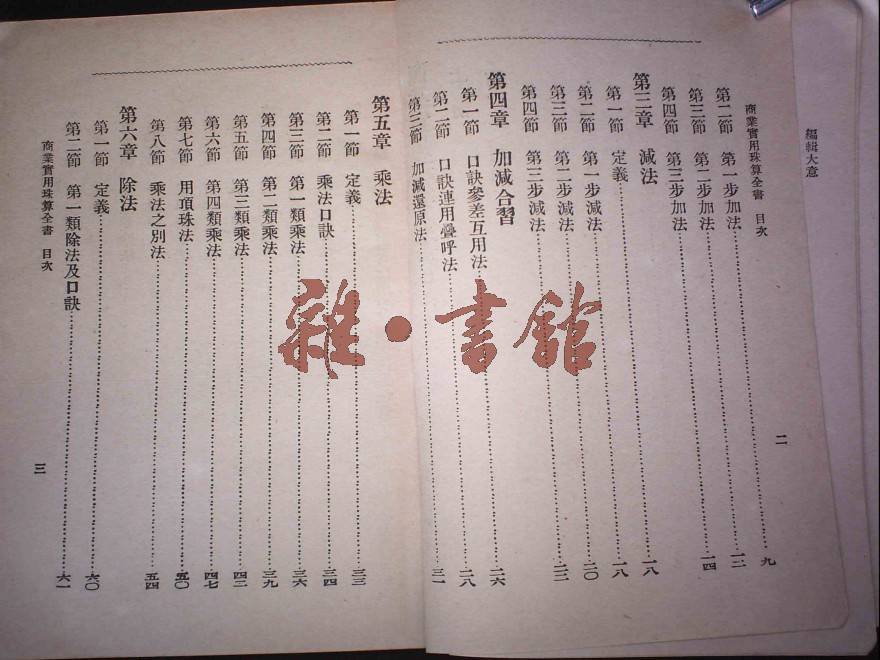 編輯大意
商業實用珠算全書 目次 二
第二節 第一步加法……九
第三節 第二步加法……一二
第四節 第三步加法……一四
第三章 減法
第一節 定義……一八
第二節 第一步減法……一八
第三節 第二步減法……二〇
第四節 第三步減法……二三
第四章 加減合習
第一節 口訣參差互用法……二六
第二節 口訣連用疊呼法……二八
第三節 加減還原法……三一
第五章 乘法
第一節 定義……三三
第二節 乘法口訣……三四
第三節 第一類乘法……三六
第四節 第二類乘法……三九
第五節 第三類乘法……四二
第六節 第四類乘法……四七
第七節 用頂珠法……五〇
第八節 乘法之別法……五四
第六章 除法
第一節 定義……六〇
第二節 第一類除法及口訣……六一
商業實用珠算全書 目次 三
雜·書館